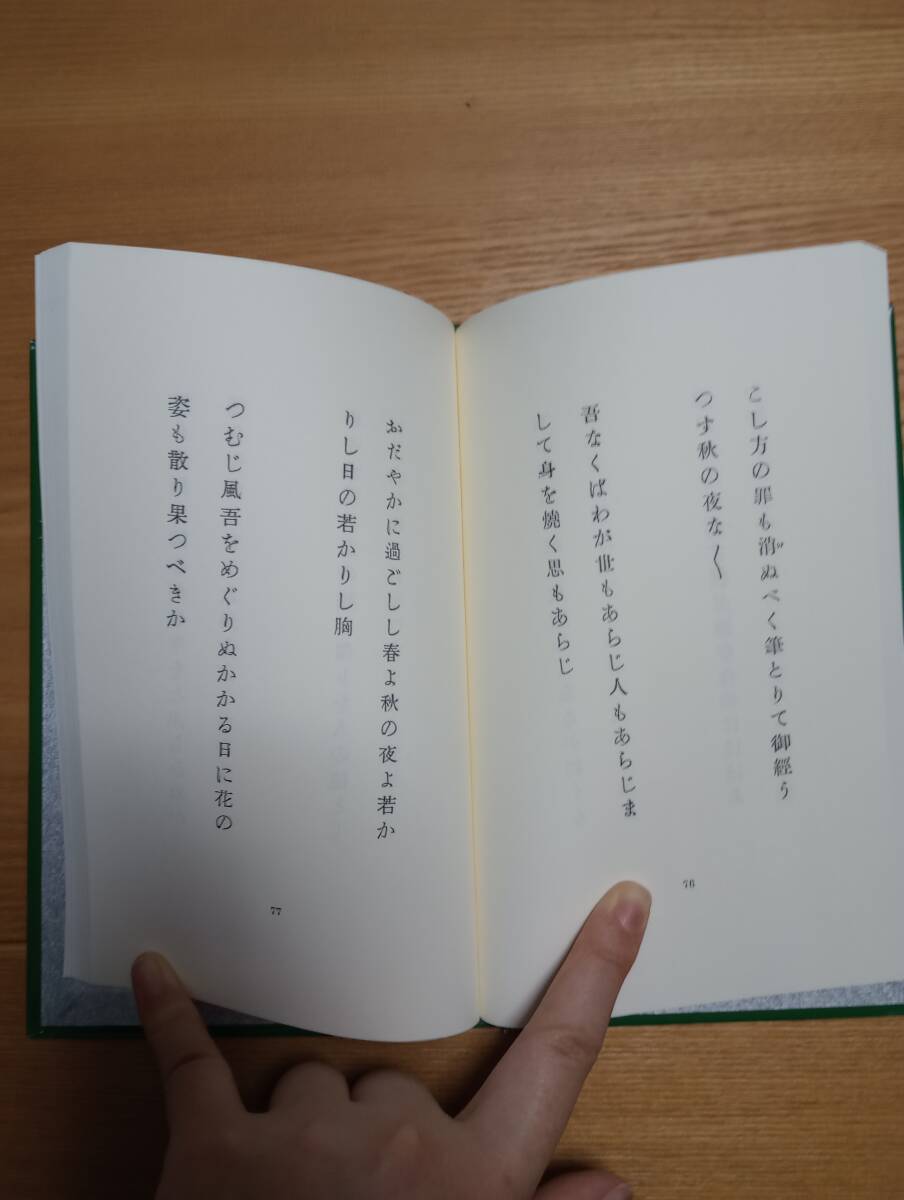 こし方の罪も消ぬべく筆とりて御經う
つす秋の夜な〱
吾なくばわが世もあらじ人もあらじま
して身を燒く思もあらじ
76
おだやかに過ごしし春よ秋の夜よ若か
りし日の若かりし胸
つむじ風吾をめぐりぬかかる日に花の
姿も散り果つべきか
77